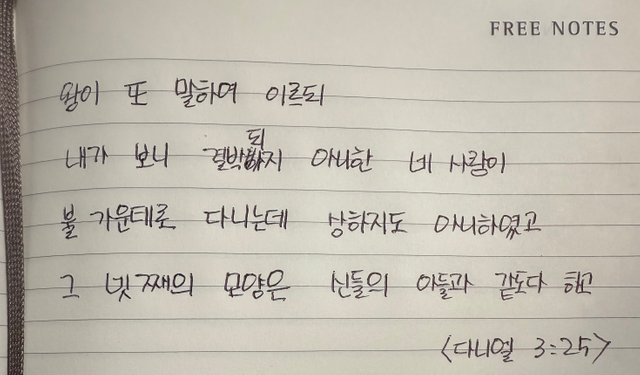 FREE NOTES
왕이 또 말하여 이르되
내가 보니 결박되지 아니한 네 사람이
불 가운데로 다니는데 상하지도 아니하였고
그 넷째의 모양은 신들의 아들과 같도다 하고
<다니엘 3:25>